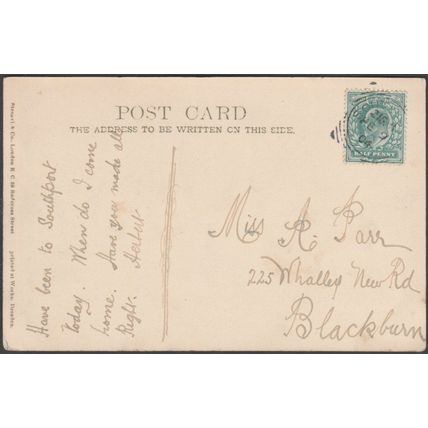 POST CARD
THE ADDRESS TO BE WRITTEN ON THIS SIDE.
HALF PENNY
Have been to Southport
today. When do I come
home. Have you made all
Right.
Miss A. Parr
225 Whalley New Rd
Blackburn
Stewart & Co., London E.C.
printed at Works, Dresden.